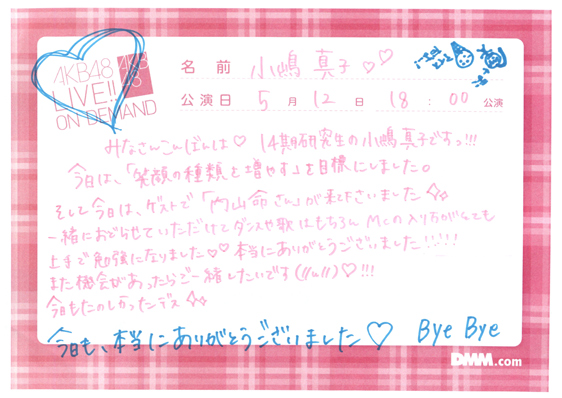 AKB48
LIVE!!
ON DEMAND
AKB
48
名前 小嶋 真子 ♡♡
公演日 5月12日 18:00 公演
みなさんこんばんは♡ 14期研究生の小嶋真子ですっ!!!
今日は、「笑顔の種類を増やす」を目標にしました。
そして今日は、ゲストで「内山命さん」が来て下さいました
一緒におどらせていただけてダンスや歌はもちろん MCの入り方がとても
上手で勉強になりました♡♡ 本当にありがとうございました!!!!
また機会があったらご一緒したいです(//u//)♡!!!
今日もたのしかったデス
今日も、本当にありがとうございました♡ Bye Bye
DMM.com